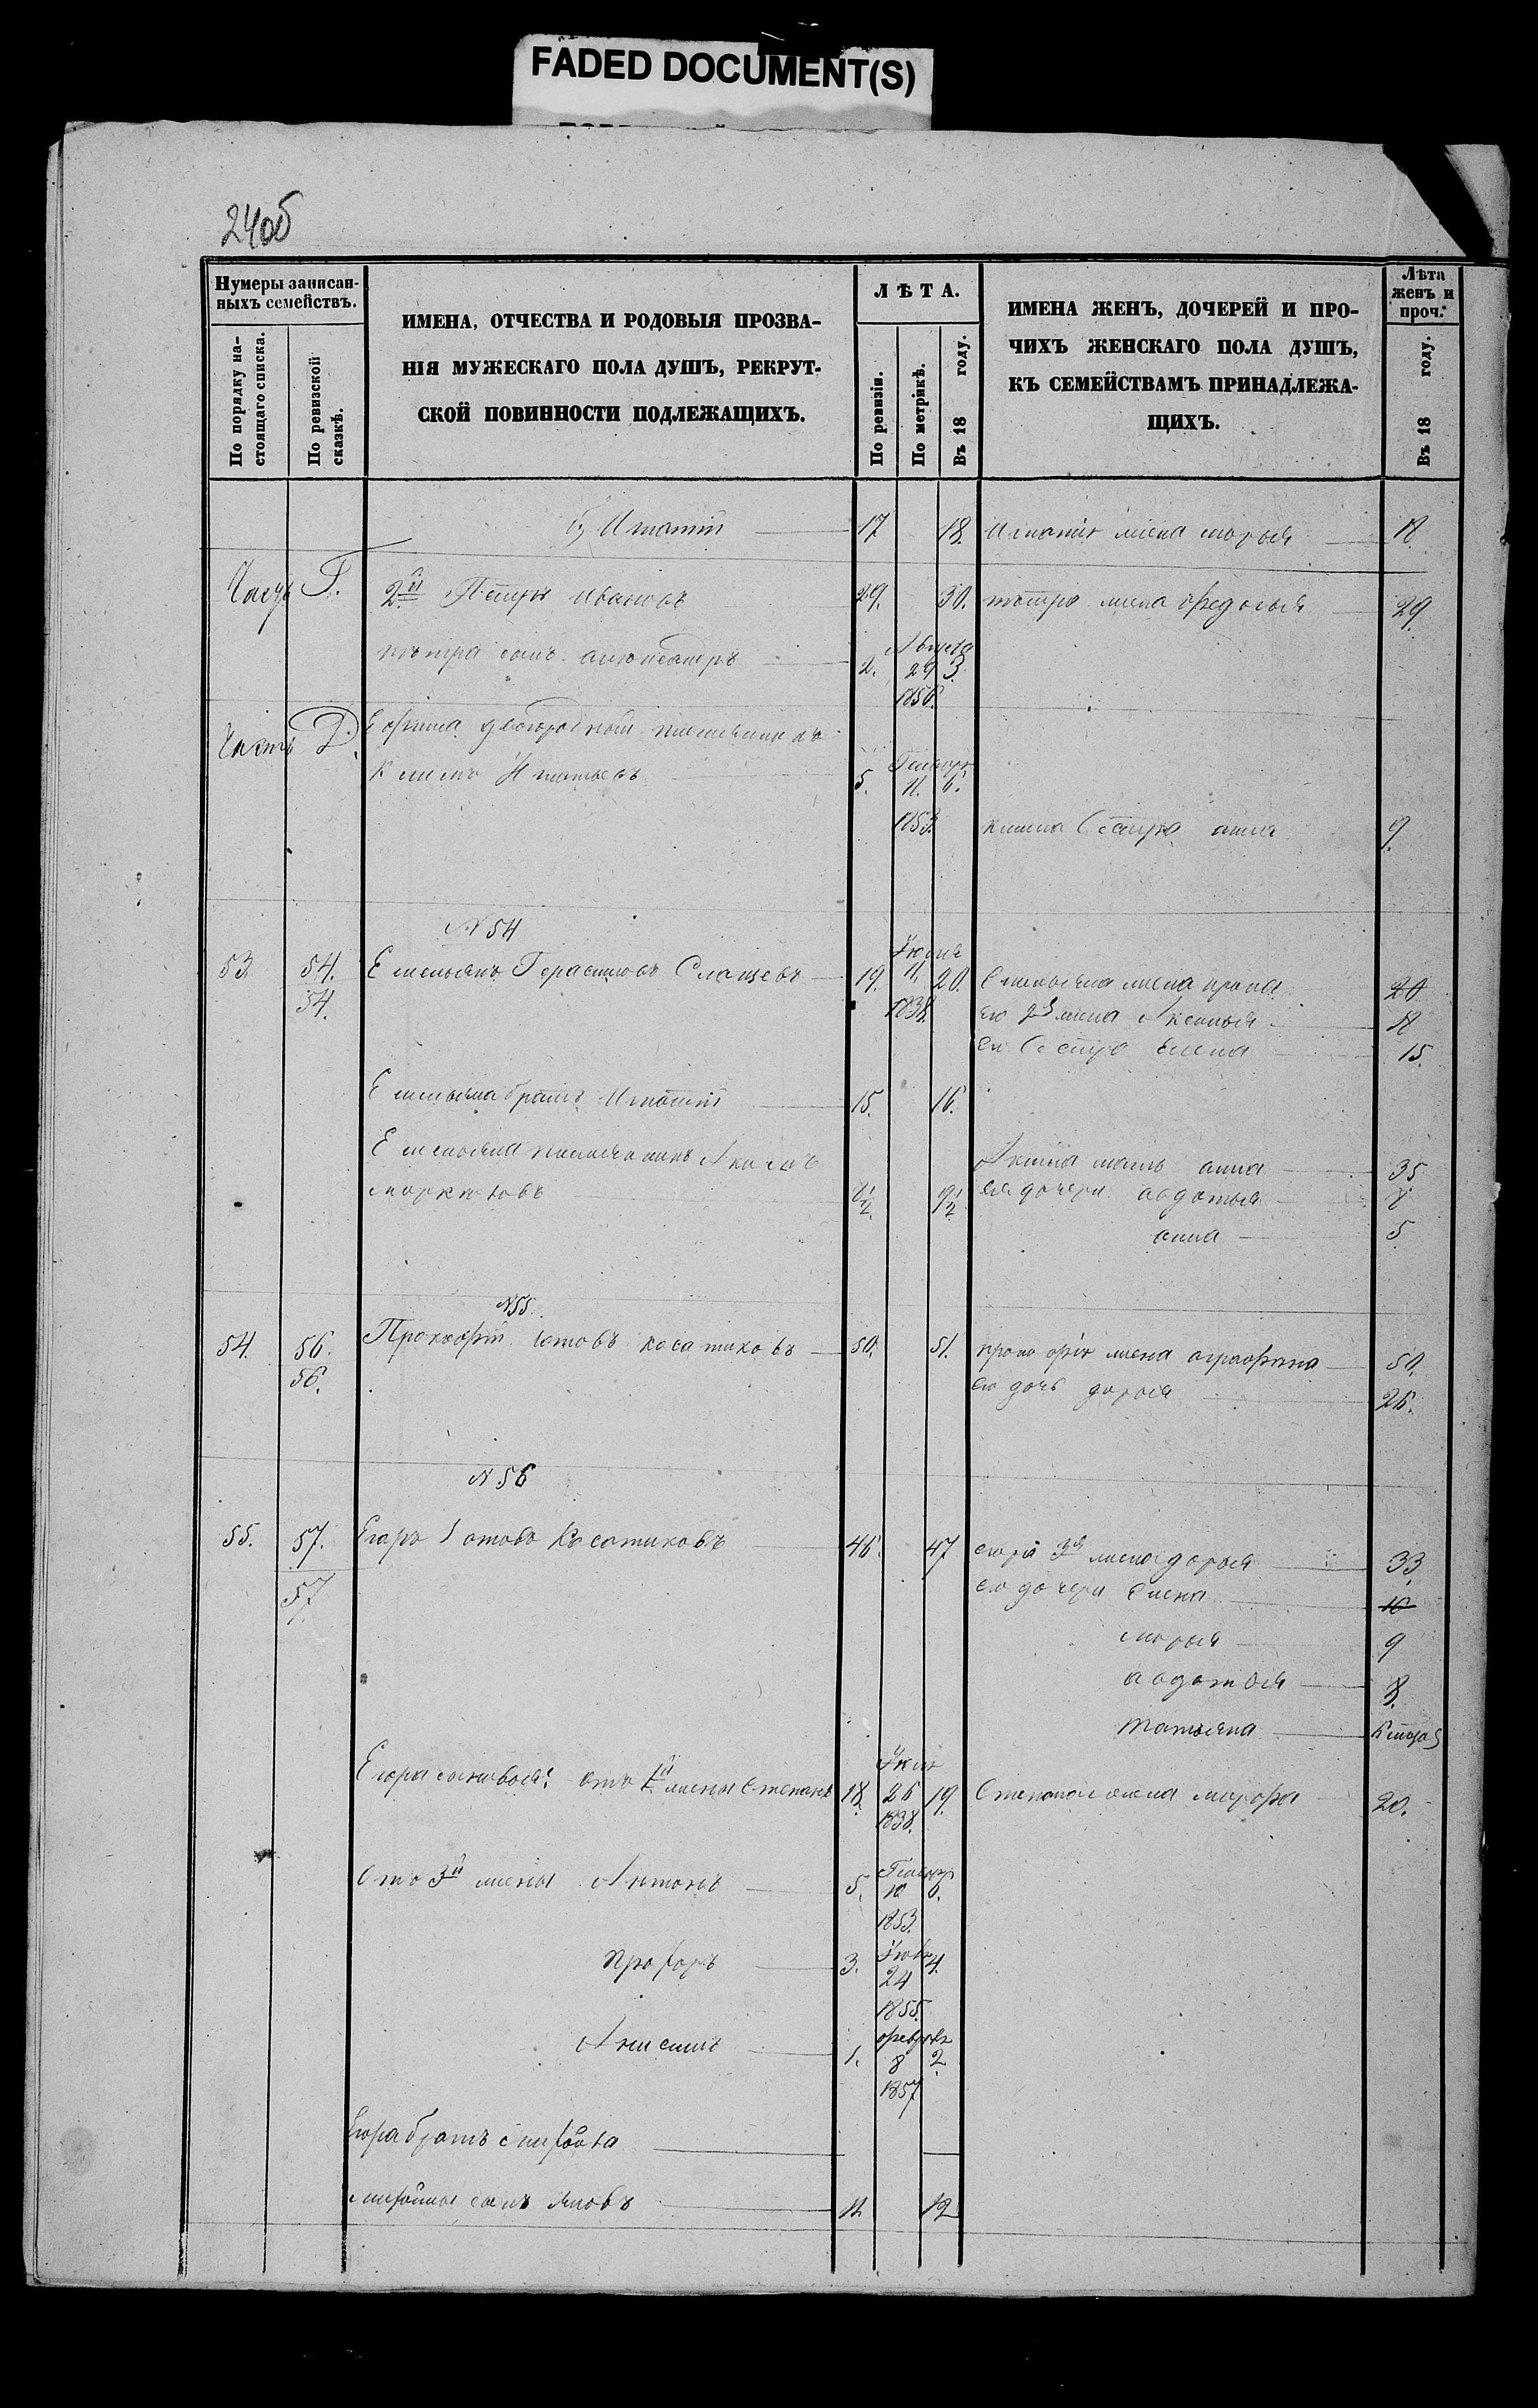 FADED DOCUMENT(S)
24об
Нумеры записан-
ныхъ семействъ.
По порядку на-
стоящаго списка.
По ревизской
сказкѣ.
ИМЕНА, ОТЧЕСТВА И РОДОВЫЯ ПРОЗВА-
НІЯ МУЖЕСКАГО ПОЛА ДУШЪ, РЕКРУТ-
СКОЙ ПОВИННОСТИ ПОДЛЕЖАЩИХЪ.
ЛѢТА.
По ревизіи.
По метрикѣ.
Въ 18 году.
ИМЕНА ЖЕНЪ, ДОЧЕРЕЙ И ПРО-
ЧИХЪ ЖЕНСКАГО ПОЛА ДУШЪ,
КЪ СЕМЕЙСТВАМЪ ПРИНАДЛЕЖА-
ЩИХЪ.
Лѣта
женъ и
проч.
Въ 18 году.
Игнатій 17 18. Игнатія жена марья 18
2й Петръ Ивановъ 29. 30. петра жена 29.
петра сынъ александръ 2. Августа 29 3.
1856.
Часть Д. Ефима двоюродный племянникъ
Климъ Игнатьевъ 5. Генваря 11. 6.
1853. клима Сестра анна 9.
N 54
53. 54. Емельянъ Герасимовъ Слащевъ 19. 11. 20. Емельяна жена 20
54. 1838. его 2я жена Аксинья 18
его Сестра Елена 15.
Емельяна братъ Игнатій 15. 16.
Емельяна племянникъ Акимъ Акима мать анна 35.
8 1/2. 9 1/2 ея дочери авдотья 8
анна 5
N 55.
54. 56. Прокофій Титовъ касатиковъ 50. 51. прокофія жена аграфена 50.
56. его дочь дарья 26.
N 56
55. 57. Егоръ Титовъ Касатиковъ 46. 47 егора 3я жена дарья 33.
57. его дочери Елена 10
марья 9
авдотья 8.
татьяна
Егора сыновья: отъ 1й жены Степанъ 18. 26 19. Степана жена 20.
1838.
Отъ 3й жены Антонъ 5. Генваря 10 6.
1853.
Прохоръ 3. 24 4.
1855.
Анисимъ 1. февраля 8 2.
1857
Егора братъ никита
никиты сынъ Яковъ 11 12